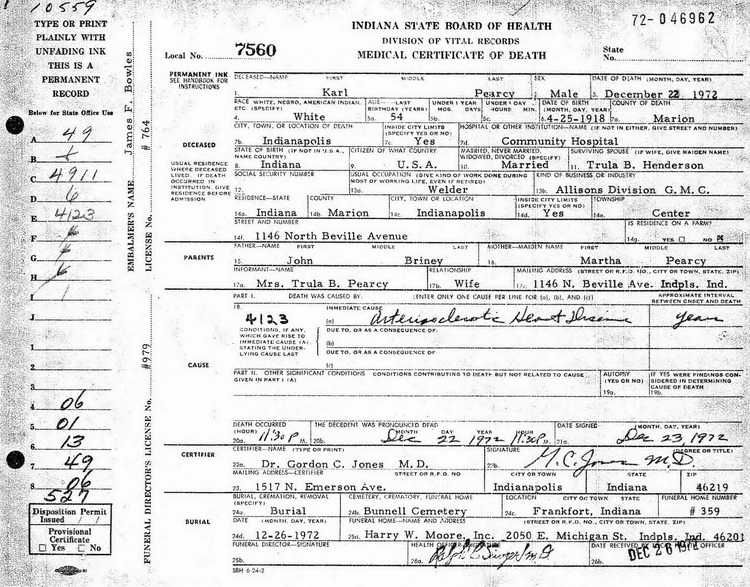 10559
INDIANA STATE BOARD OF HEALTH
DIVISION OF VITAL RECORDS
MEDICAL CERTIFICATE OF DEATH
72-046962
Local No. 7560
State No.
TYPE OR PRINT
PLAINLY WITH
UNFADING INK
THIS IS A
PERMANENT
RECORD
Below for State Office Use
A 49
B
C 4911
D 6
E 4123
F
G
H
I
J
1
2
3
4 06
5 01
6 13
7 49
8 06
527
Disposition Permit
Issued
Provisional
Certificate
Yes No
EMBALMER'S NAME James F. Bowles
LICENSE No. # 764
FUNERAL DIRECTOR'S LICENSE No. #979
PERMANENT INK
SEE HANDBOOK FOR
INSTRUCTIONS
DECEASED—NAME FIRST MIDDLE LAST SEX DATE OF DEATH (MONTH, DAY, YEAR)
1. Karl Pearcy 2. Male 3. December 22 1972
RACE WHITE, NEGRO, AMERICAN INDIAN, ETC. (SPECIFY) AGE—LAST BIRTHDAY (YEARS) UNDER 1 YEAR MOS. DAYS UNDER 1 DAY HOURS MIN. DATE OF BIRTH (MONTH, DAY, YEAR) COUNTY OF DEATH
4. White 5a. 54 5b. 5c. 6. 4-25-1918 7a. Marion
DECEASED
CITY, TOWN, OR LOCATION OF DEATH INSIDE CITY LIMITS (SPECIFY YES OR NO) HOSPITAL OR OTHER INSTITUTION—NAME (IF NOT IN EITHER, GIVE STREET AND NUMBER)
7b. Indianapolis 7c. Yes 7d. Community Hospital
USUAL RESIDENCE
WHERE DECEASED
LIVED. IF DEATH
OCCURRED IN
INSTITUTION, GIVE
RESIDENCE BEFORE
ADMISSION
STATE OF BIRTH (IF NOT IN U.S.A., NAME COUNTRY) CITIZEN OF WHAT COUNTRY MARRIED, NEVER MARRIED, WIDOWED, DIVORCED (SPECIFY) SURVIVING SPOUSE (IF WIFE, GIVE MAIDEN NAME)
8. Indiana 9. U.S.A. 10. Married 11. Trula B. Henderson
SOCIAL SECURITY NUMBER USUAL OCCUPATION (GIVE KIND OF WORK DONE DURING MOST OF WORKING LIFE, EVEN IF RETIRED) KIND OF BUSINESS OR INDUSTRY
12. 13a. Welder 13b. Allisons Division G.M.C.
RESIDENCE—STATE COUNTY CITY, TOWN OR LOCATION INSIDE CITY LIMITS (SPECIFY YES OR NO) TOWNSHIP
14a. Indiana 14b. Marion 14c. Indianapolis 14d. Yes 14e. Center
STREET AND NUMBER IS RESIDENCE ON A FARM?
14f. 1146 North Beville Avenue 14g. YES NO
PARENTS
FATHER—NAME FIRST MIDDLE LAST MOTHER—MAIDEN NAME FIRST MIDDLE LAST
15. John Briney 16. Martha Pearcy
INFORMANT—NAME RELATIONSHIP MAILING ADDRESS (STREET OR R.F.D. NO., CITY OR TOWN, STATE, ZIP)
17a. Mrs. Trula B. Pearcy 17b. Wife 17c. 1146 N. Beville Ave. Indpls. Ind.
PART I. DEATH WAS CAUSED BY: (ENTER ONLY ONE CAUSE PER LINE FOR (a), (b), AND (c)) APPROXIMATE INTERVAL BETWEEN ONSET AND DEATH
18. IMMEDIATE CAUSE
4123 (a) Arteriosclerotic Heart Disease Years
CONDITIONS, IF ANY,
WHICH GAVE RISE TO
IMMEDIATE CAUSE (A)
STATING THE UNDER-
LYING CAUSE LAST
DUE TO, OR AS A CONSEQUENCE OF:
(b)
DUE TO, OR AS A CONSEQUENCE OF:
(c)
CAUSE
PART II. OTHER SIGNIFICANT CONDITIONS CONDITIONS CONTRIBUTING TO DEATH BUT NOT RELATED TO CAUSE GIVEN IN PART I (A) AUTOPSY (YES OR NO) IF YES WERE FINDINGS CONSIDERED IN DETERMINING CAUSE OF DEATH
19a. 19b.
DEATH OCCURRED (HOUR) THE DECEDENT WAS PRONOUNCED DEAD MONTH DAY YEAR HOUR DATE SIGNED (MONTH, DAY, YEAR)
20a. 11:30 P M. 20b. Dec 22 1972 11:30 P M. 21a. Dec 23, 1972
CERTIFIER
CERTIFIER—NAME (TYPE OR PRINT) SIGNATURE (DEGREE OR TITLE)
22a. Dr. Gordon C. Jones M.D. 22b. G. C. Jones M.D.
MAILING ADDRESS—CERTIFIER STREET OR R.F.D. NO. CITY OR TOWN STATE ZIP
23. 1517 N. Emerson Ave. Indianapolis Indiana 46219
BURIAL, CREMATION, REMOVAL (SPECIFY) CEMETERY, CREMATORY, FUNERAL HOME LOCATION CITY OR TOWN, STATE FUNERAL HOME NUMBER
24a. Burial 24b. Bunnell Cemetery 24c. Frankfort, Indiana # 359
BURIAL
DATE (MONTH, DAY, YEAR) FUNERAL HOME—NAME AND ADDRESS (STREET OR R.F.D. NO., CITY OR TOWN, STATE, ZIP)
24d. 12-26-1972 25a. Harry W. Moore, Inc. 2050 E. Michigan St. Indpls. Ind. 46201
FUNERAL DIRECTOR—SIGNATURE HEALTH OFFICER
25b. 26a. 26b. DEC 26 1972
SBH 6-24-2